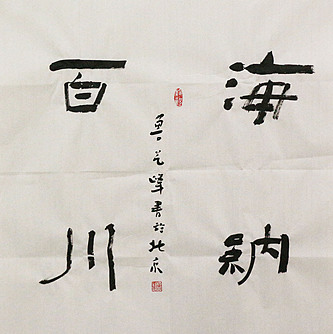 海納
百川
書於北京